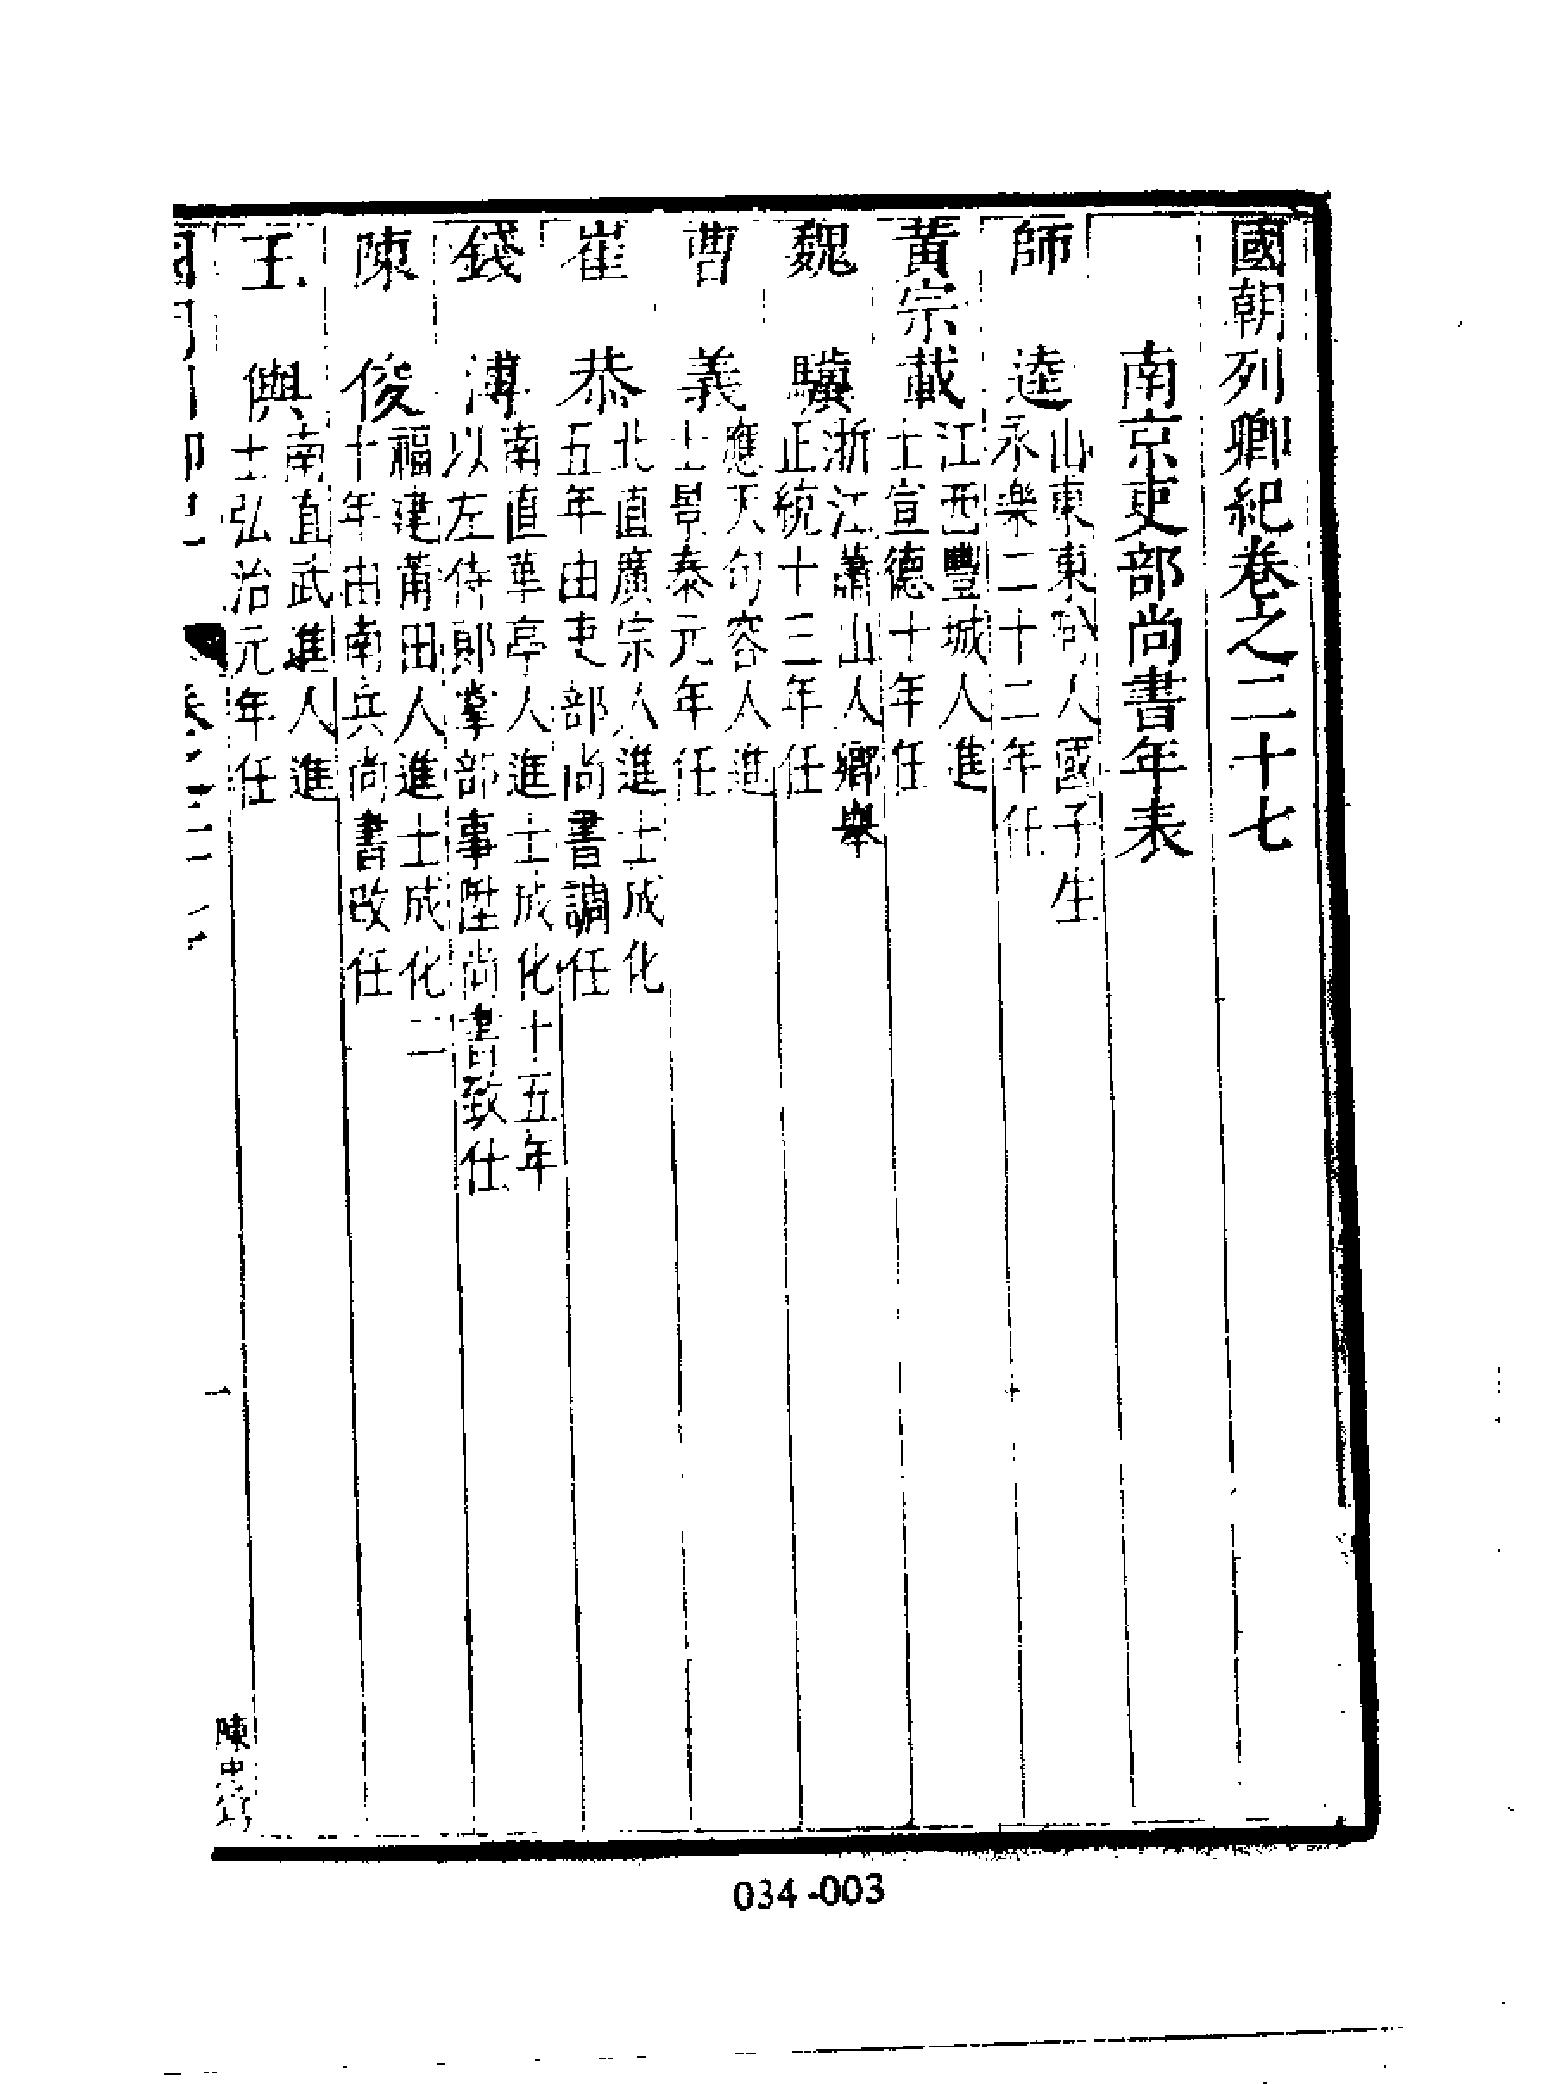 國朝列卿紀卷之二十七
南京吏部尚書年表
師逵山東東阿人國子生
永樂二十二年任
黃宗載江西豐城人進
士宣德十年任
魏驥浙江蕭山人鄉舉
正統十三年任
曹義應天句容人進
士景泰元年任
崔恭北直廣宗人進士成化
五年由吏部尚書調任
錢溥南直華亭人進士成化十五年
以左侍郎掌部事陞尚書致仕
陳俊福建莆田人進士成化二
十年由南兵尚書改任
王㒜南直武進人進
士弘治元年任
一
034-003